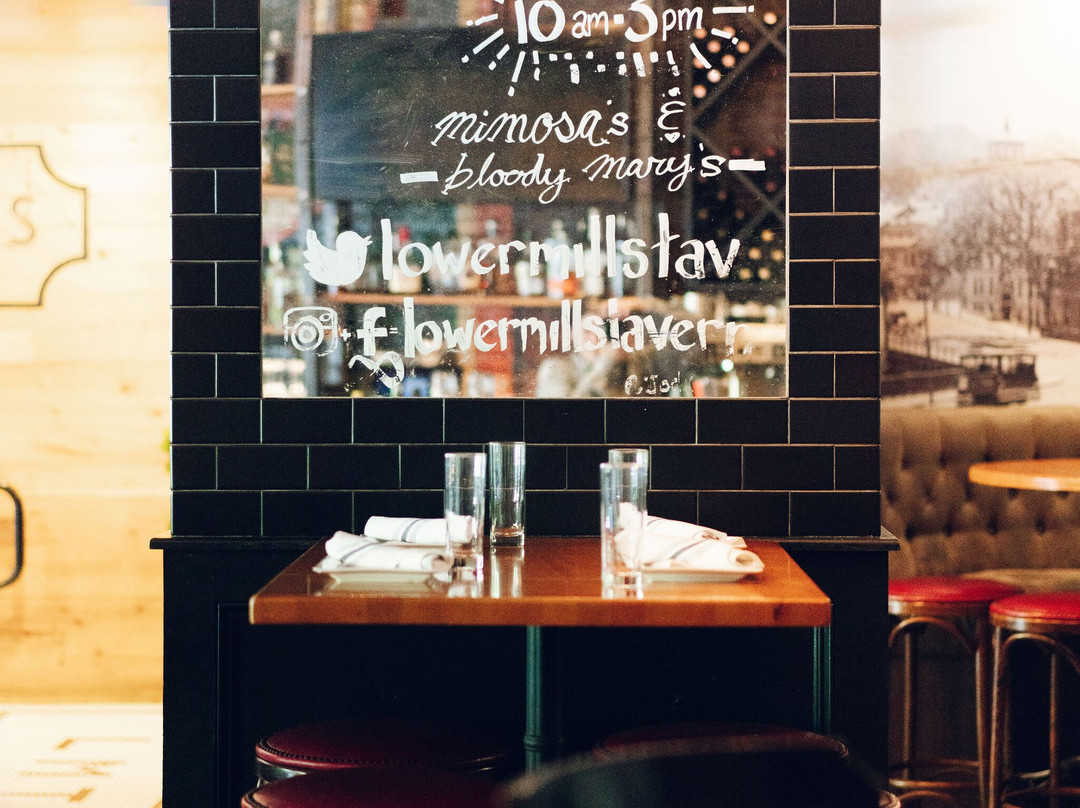 10am-3pm
mimosa's &
bloody mary's
lowermillstav
+ f = lowermillstavern
S